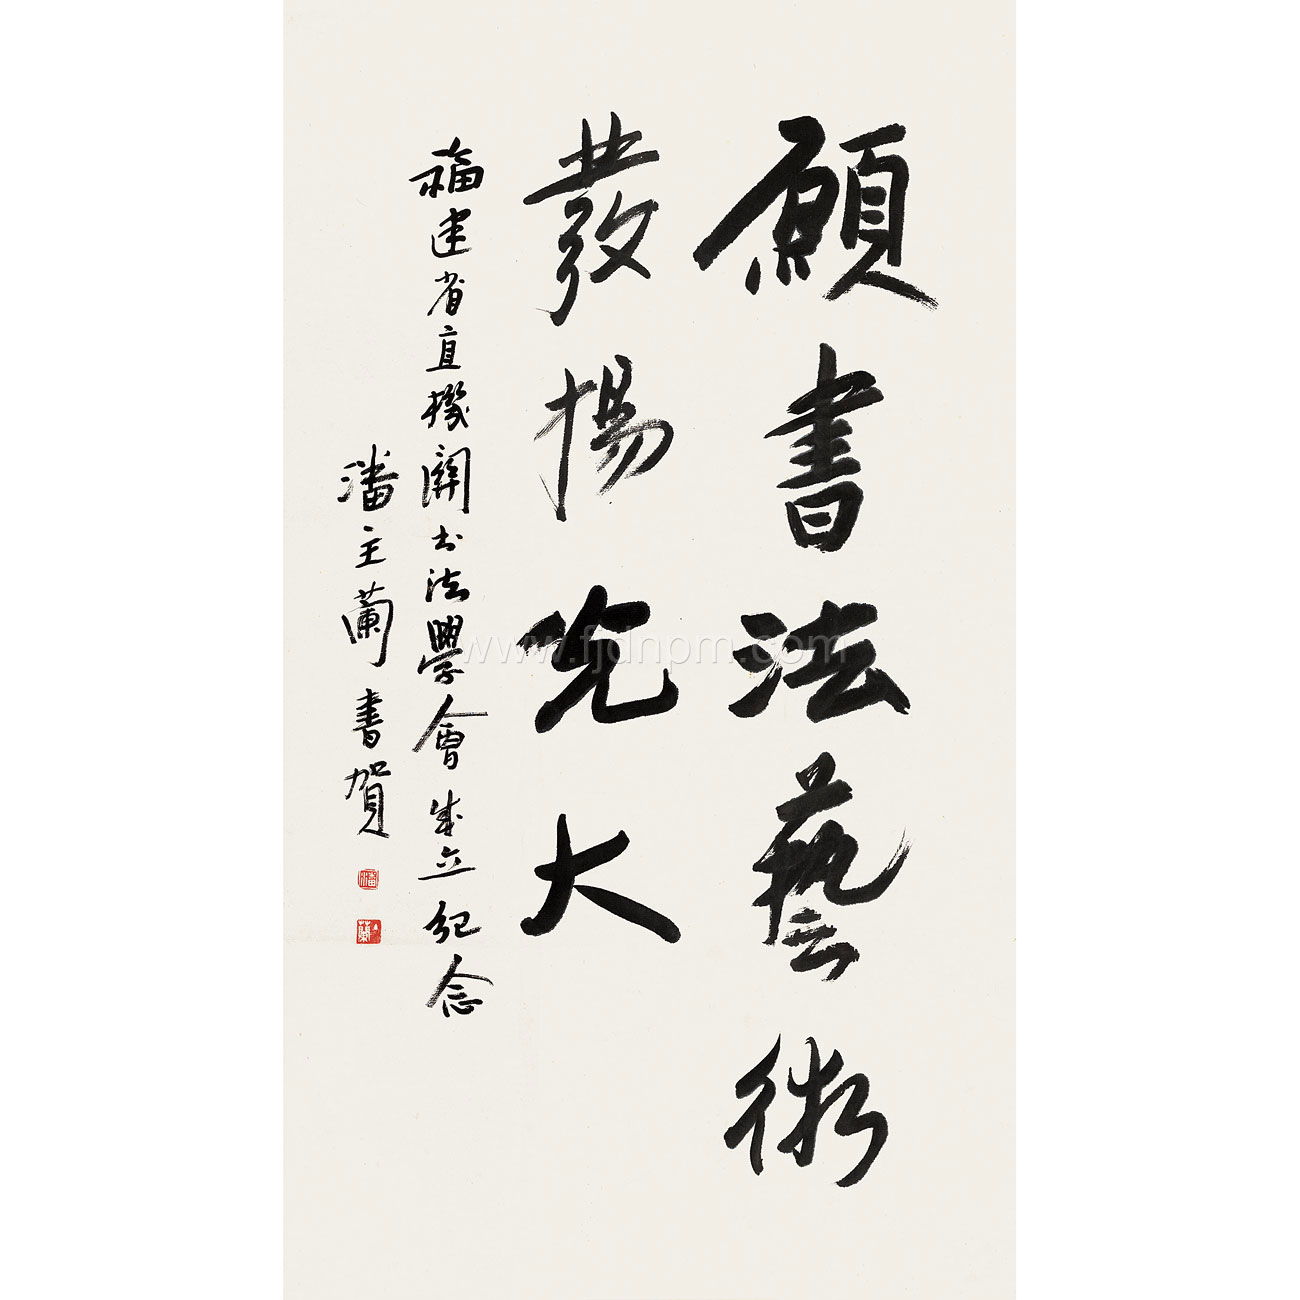 願書法藝術
發揚光大
福建省直機關书法學會成立紀念
潘主蘭書賀
www.fjdnpm.com